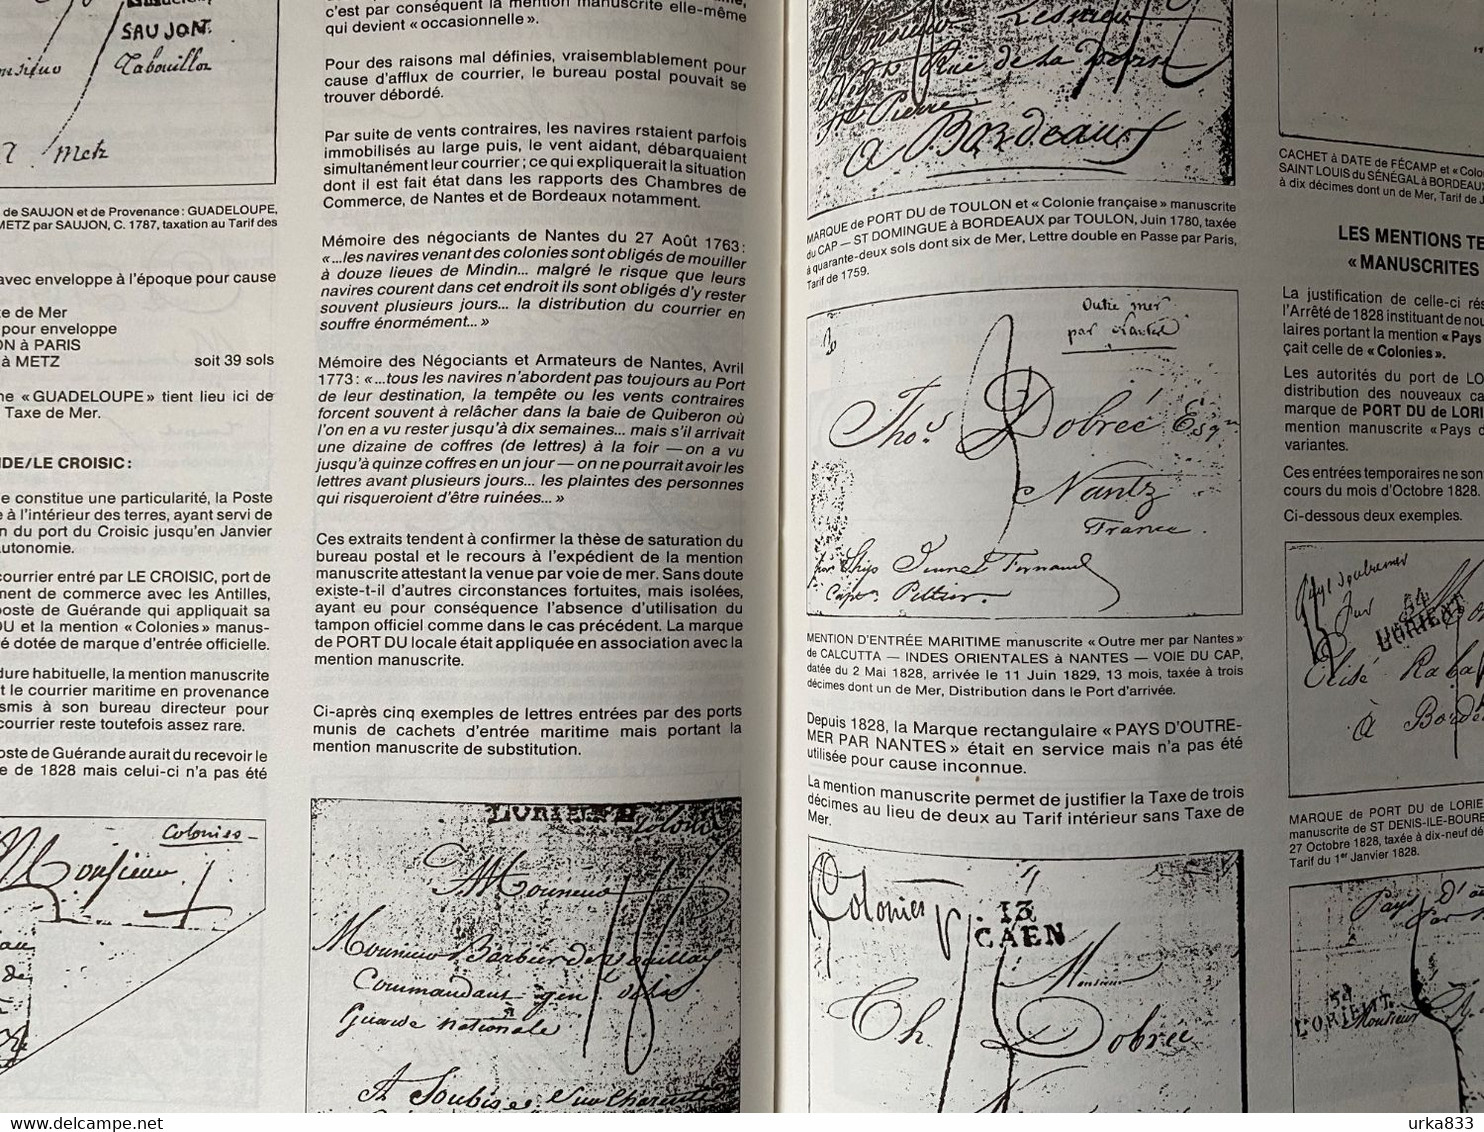 SAUJON.
Tabouillon
Metz
de SAUJON et de Provenance : GUADELOUPE,
METZ par SAUJON, C. 1787, taxation au Tarif des
avec enveloppe à l'époque pour cause
de Mer
pour enveloppe
ON à PARIS
à METZ soit 39 sols
ne « GUADELOUPE » tient lieu ici de
Taxe de Mer.
DE/LE CROISIC :
e constitue une particularité, la Poste
e à l'intérieur des terres, ayant servi de
n du port du Croisic jusqu'en Janvier
utonomie.
courrier entré par LE CROISIC, port de
ment de commerce avec les Antilles,
poste de Guérande qui appliquait sa
DU et la mention « Colonies » manus-
té dotée de marque d'entrée officielle.
dure habituelle, la mention manuscrite
t le courrier maritime en provenance
smis à son bureau directeur pour
courrier reste toutefois assez rare.
oste de Guérande aurait du recevoir le
e de 1828 mais celui-ci n'a pas été
Colonies
Monsieur
c'est par conséquent la mention manuscrite elle-même
qui devient « occasionnelle ».
Pour des raisons mal définies, vraisemblablement pour
cause d'afflux de courrier, le bureau postal pouvait se
trouver débordé.
Par suite de vents contraires, les navires rstaient parfois
immobilisés au large puis, le vent aidant, débarquaient
simultanément leur courrier ; ce qui expliquerait la situation
dont il est fait état dans les rapports des Chambres de
Commerce, de Nantes et de Bordeaux notamment.
Mémoire des négociants de Nantes du 27 Août 1763 :
« ...les navires venant des colonies sont obligés de mouiller
à douze lieues de Mindin... malgré le risque que leurs
navires courent dans cet endroit ils sont obligés d'y rester
souvent plusieurs jours... la distribution du courrier en
souffre énormément... »
Mémoire des Négociants et Armateurs de Nantes, Avril
1773 : « ...tous les navires n'abordent pas toujours au Port
de leur destination, la tempête ou les vents contraires
forcent souvent à relâcher dans la baie de Quiberon où
l'on en a vu rester jusqu'à dix semaines... mais s'il arrivait
une dizaine de coffres (de lettres) à la foir — on a vu
jusqu'à quinze coffres en un jour — on ne pourrait avoir les
lettres avant plusieurs jours... les plaintes des personnes
qui risqueroient d'être ruinées... »
Ces extraits tendent à confirmer la thèse de saturation du
bureau postal et le recours à l'expédient de la mention
manuscrite attestant la venue par voie de mer. Sans doute
existe-t-il d'autres circonstances fortuites, mais isolées,
ayant eu pour conséquence l'absence d'utilisation du
tampon officiel comme dans le cas précédent. La marque
de PORT DU locale était appliquée en association avec la
mention manuscrite.
Ci-après cinq exemples de lettres entrées par des ports
munis de cachets d'entrée maritime mais portant la
mention manuscrite de substitution.
LORIENT
Monsieur
Monsieur Barbier de
Commandant gen de la
Guarde nationale
A Soubise
Rue de la
St Pierre
A Bordeaux
MARQUE de PORT DU de TOULON et « Colonie française » manuscrite
du CAP — ST DOMINGUE à BORDEAUX par TOULON, Juin 1780, taxée
à quarante-deux sols dont six de Mer, Lettre double en Passe par Paris,
Tarif de 1759.
Outre mer
par Nantes
Thos. Dobrée Esqr.
Nantz
France.
MENTION D'ENTRÉE MARITIME manuscrite « Outre mer par Nantes »
de CALCUTTA — INDES ORIENTALES à NANTES — VOIE DU CAP,
datée du 2 Mai 1828, arrivée le 11 Juin 1829, 13 mois, taxée à trois
décimes dont un de Mer, Distribution dans le Port d'arrivée.
Depuis 1828, la Marque rectangulaire « PAYS D'OUTRE-
MER PAR NANTES » était en service mais n'a pas été
utilisée pour cause inconnue.
La mention manuscrite permet de justifier la Taxe de trois
décimes au lieu de deux au Tarif intérieur sans Taxe de
Mer.
Colonies
13
CAEN
Monsieur
Th. Dobrée
CACHET à DATE de FÉCAMP et « Colo
SAINT LOUIS du SÉNÉGAL à BORDEAU
à dix décimes dont un de Mer, Tarif de J
LES MENTIONS TE
« MANUSCRITES
La justification de celle-ci rés
l'Arrêté de 1828 instituant de nou
laires portant la mention « Pays
çait celle de « Colonies ».
Les autorités du port de LO
distribution des nouveaux ca
marque de PORT DU de LORI
mention manuscrite « Pays d
variantes.
Ces entrées temporaires ne son
cours du mois d'Octobre 1828.
Ci-dessous deux exemples.
54
LORIENT
à Bord
MARQUE de PORT DU de LORIE
manuscrite de ST DENIS-ILE-BOURB
27 Octobre 1828, taxée à dix-neuf dé
Tarif du 1er Janvier 1828.
Pays d'
54
LORIENT
Monsieur
Delcampe.net
urka833